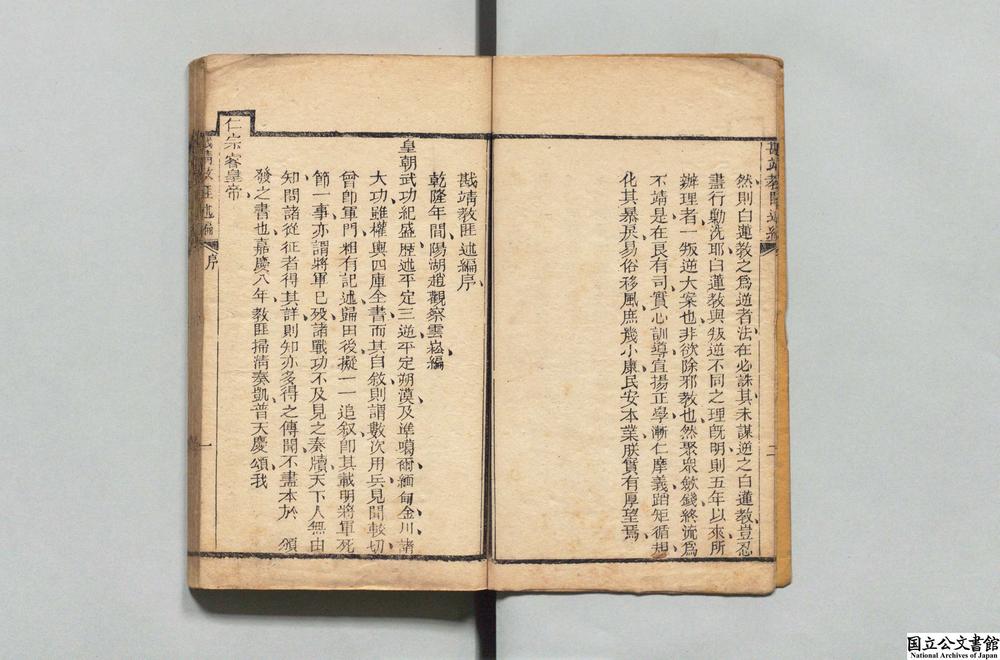 然則白蓮教之爲逆者法在必誅其未謀逆之白蓮教豈忍
盡行勦洗耶白蓮教與叛逆不同之理旣明則五年以來所
辦理者一叛逆大案也非欲除邪教也然聚衆斂錢終流爲
不靖是在良有司實心訓導宣揚正學漸仁摩義蹈矩循規
化其暴戾易俗移風庶幾小康民安本業朕實有厚望焉
戡靖教匪述編序
乾隆年間陽湖趙觀察雲崧編
皇朝武功紀盛歴述平定三逆平定朔漠及準噶爾緬甸金川諸
大功雖權輿四庫全書而其自敘則謂數次用兵見聞較切
曾卽軍門粗有記述歸田後擬一一追叙卽其載明將軍死
節一事亦謂將軍已歿諸戰功不及見之奏牘天下人無由
知問諸從征者得其詳則知亦多得之傳聞不盡本於 頒
發之書也嘉慶八年教匪掃淸奏凱普天慶頌我
仁宗睿皇帝
戡靖教匪述編
序
一
戡靖教匪述編
二
国立公文書館
National Archives of Japan